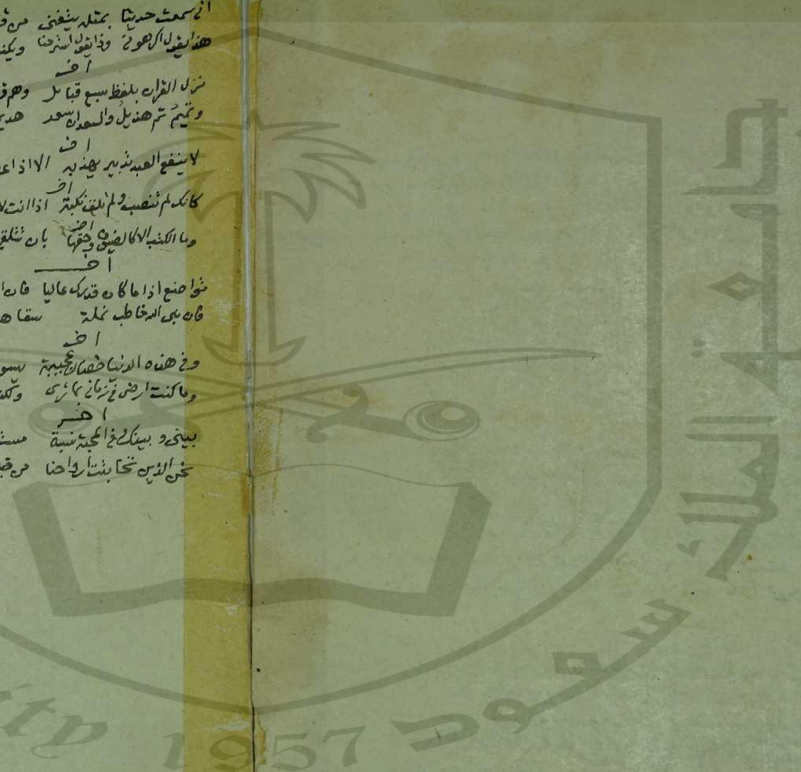 اني سمعت حديثا بمثله يتغنى من
هذا يقول وذا يقول استرحنا
اخر
نزل القران بلفظ سبع قبايل وهم
وتميم ثم هذيل والسعدان سعد
اخر
لا ينفع العبد تدبير يهذبه الا اذا
اخر
كانك لم تنصب ولم تلق نكبة اذا انت
وما الكتب الا كالضيوف وحقها بان تتلقى
اخر
تواضع اذا ما كان قدرك عاليا فان
فان نبي الله خاطب نملة
اخر
وفي هذه الدنيا خصال عجيبة
وما كنت ارضى في زماني بما ترى
اخر
بيني وبينك في المحبة نسبة
نحن الذين تحاببت ارواحنا من
جامعة الملك سعود
ity 1957